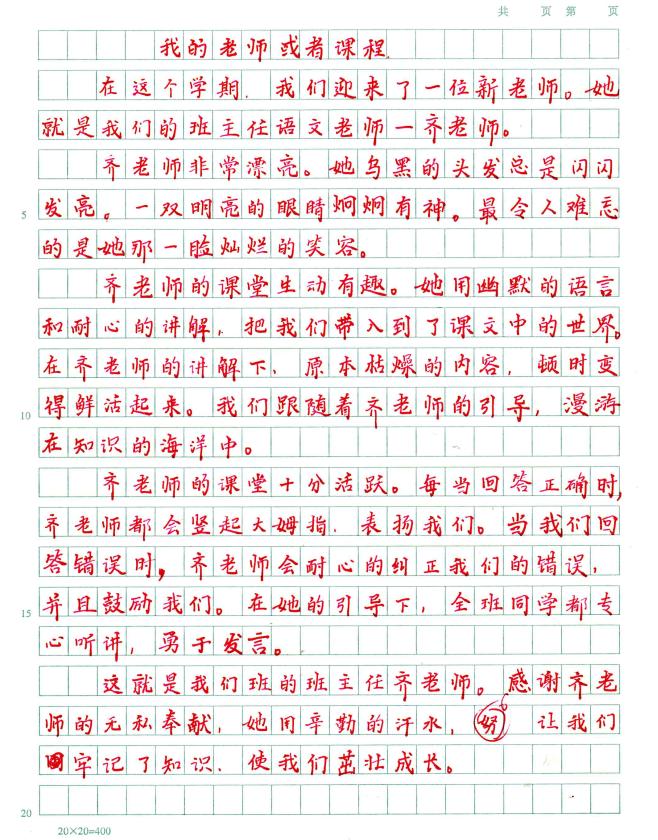 共 页 第 页
我的老师或者课程
在这个学期,我们迎来了一位新老师。她
就是我们的班主任语文老师一齐老师。
齐老师非常漂亮。她乌黑的头发总是闪闪
5 发亮。一双明亮的眼睛炯炯有神。最令人难忘
的是她那一脸灿烂的笑容。
齐老师的课堂生动有趣。她用幽默的语言
和耐心的讲解,把我们带入到了课文中的世界。
在齐老师的讲解下,原本枯燥的内容,顿时变
10 得鲜活起来。我们跟随着齐老师的引导,漫游
在知识的海洋中。
齐老师的课堂十分活跃。每当回答正确时,
齐老师都会竖起大姆指,表扬我们。当我们回
答错误时,齐老师会耐心的纠正我们的错误,
15 并且鼓励我们。在她的引导下,全班同学都专
心听讲,勇于发言。
这就是我们班的班主任齐老师。感谢齐老
师的无私奉献,她用辛勤的汗水, 让我们
牢记了知识,使我们茁壮成长。
20
20×20=400